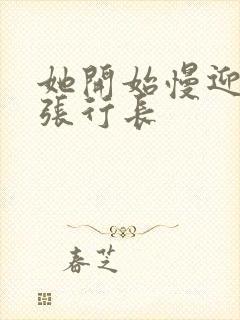 她開始慢迎
張行長
春芝